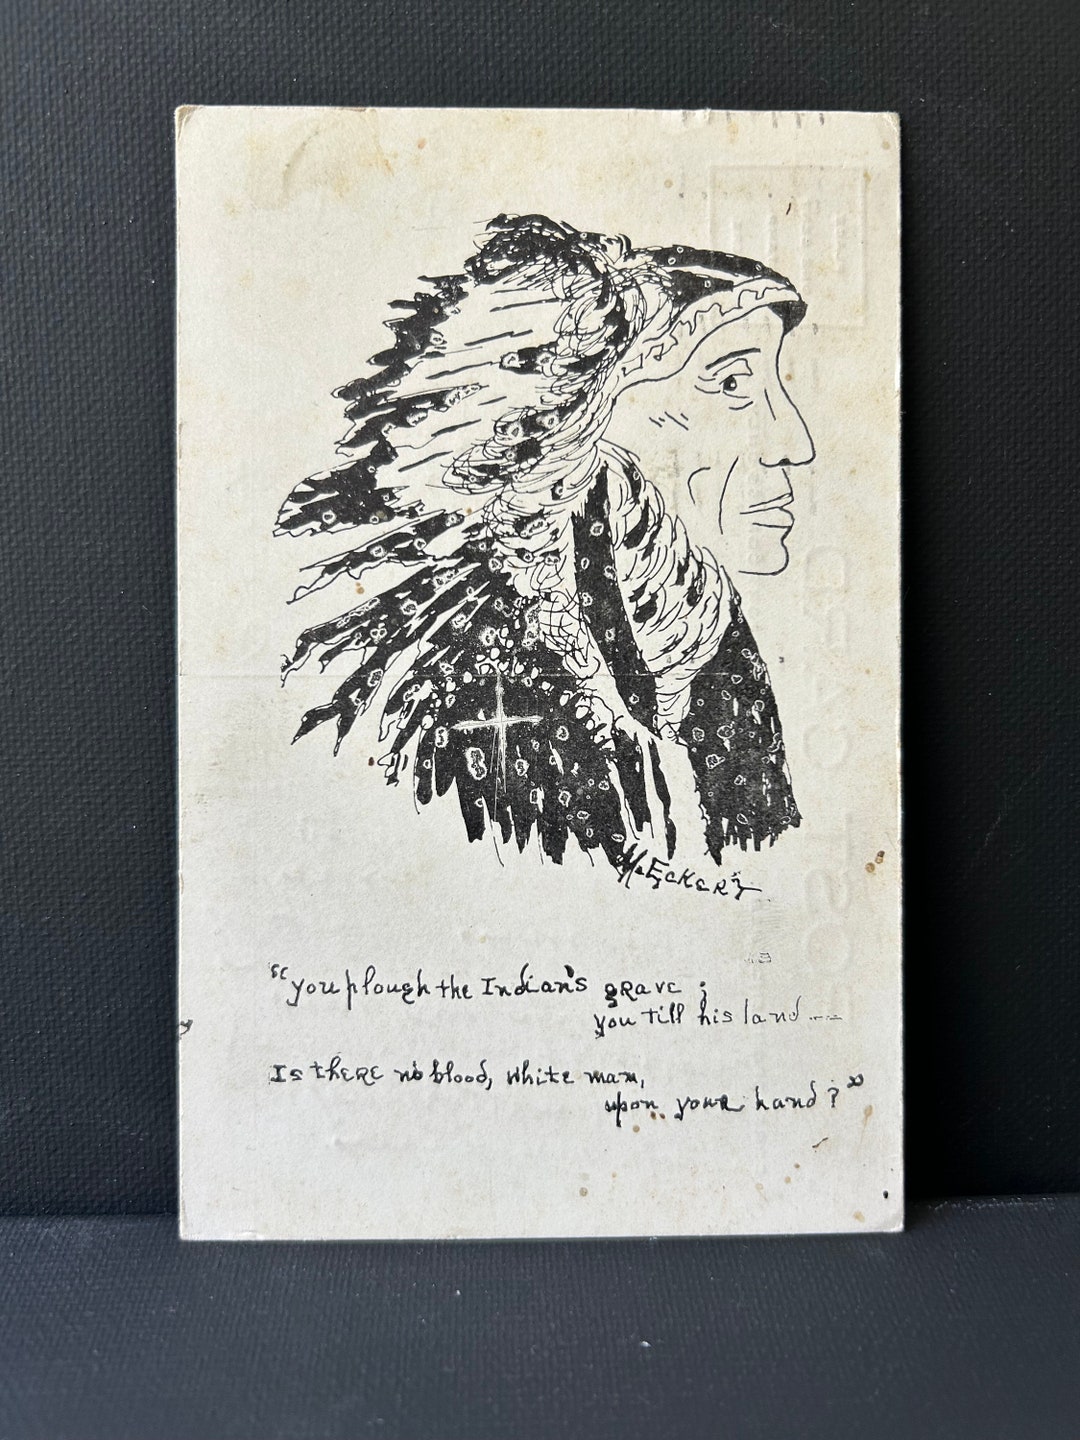 M. Eckert
"you plough the Indian's grave;
you till his land---
Is there no blood, white man,
upon your hand?"
POST CARD